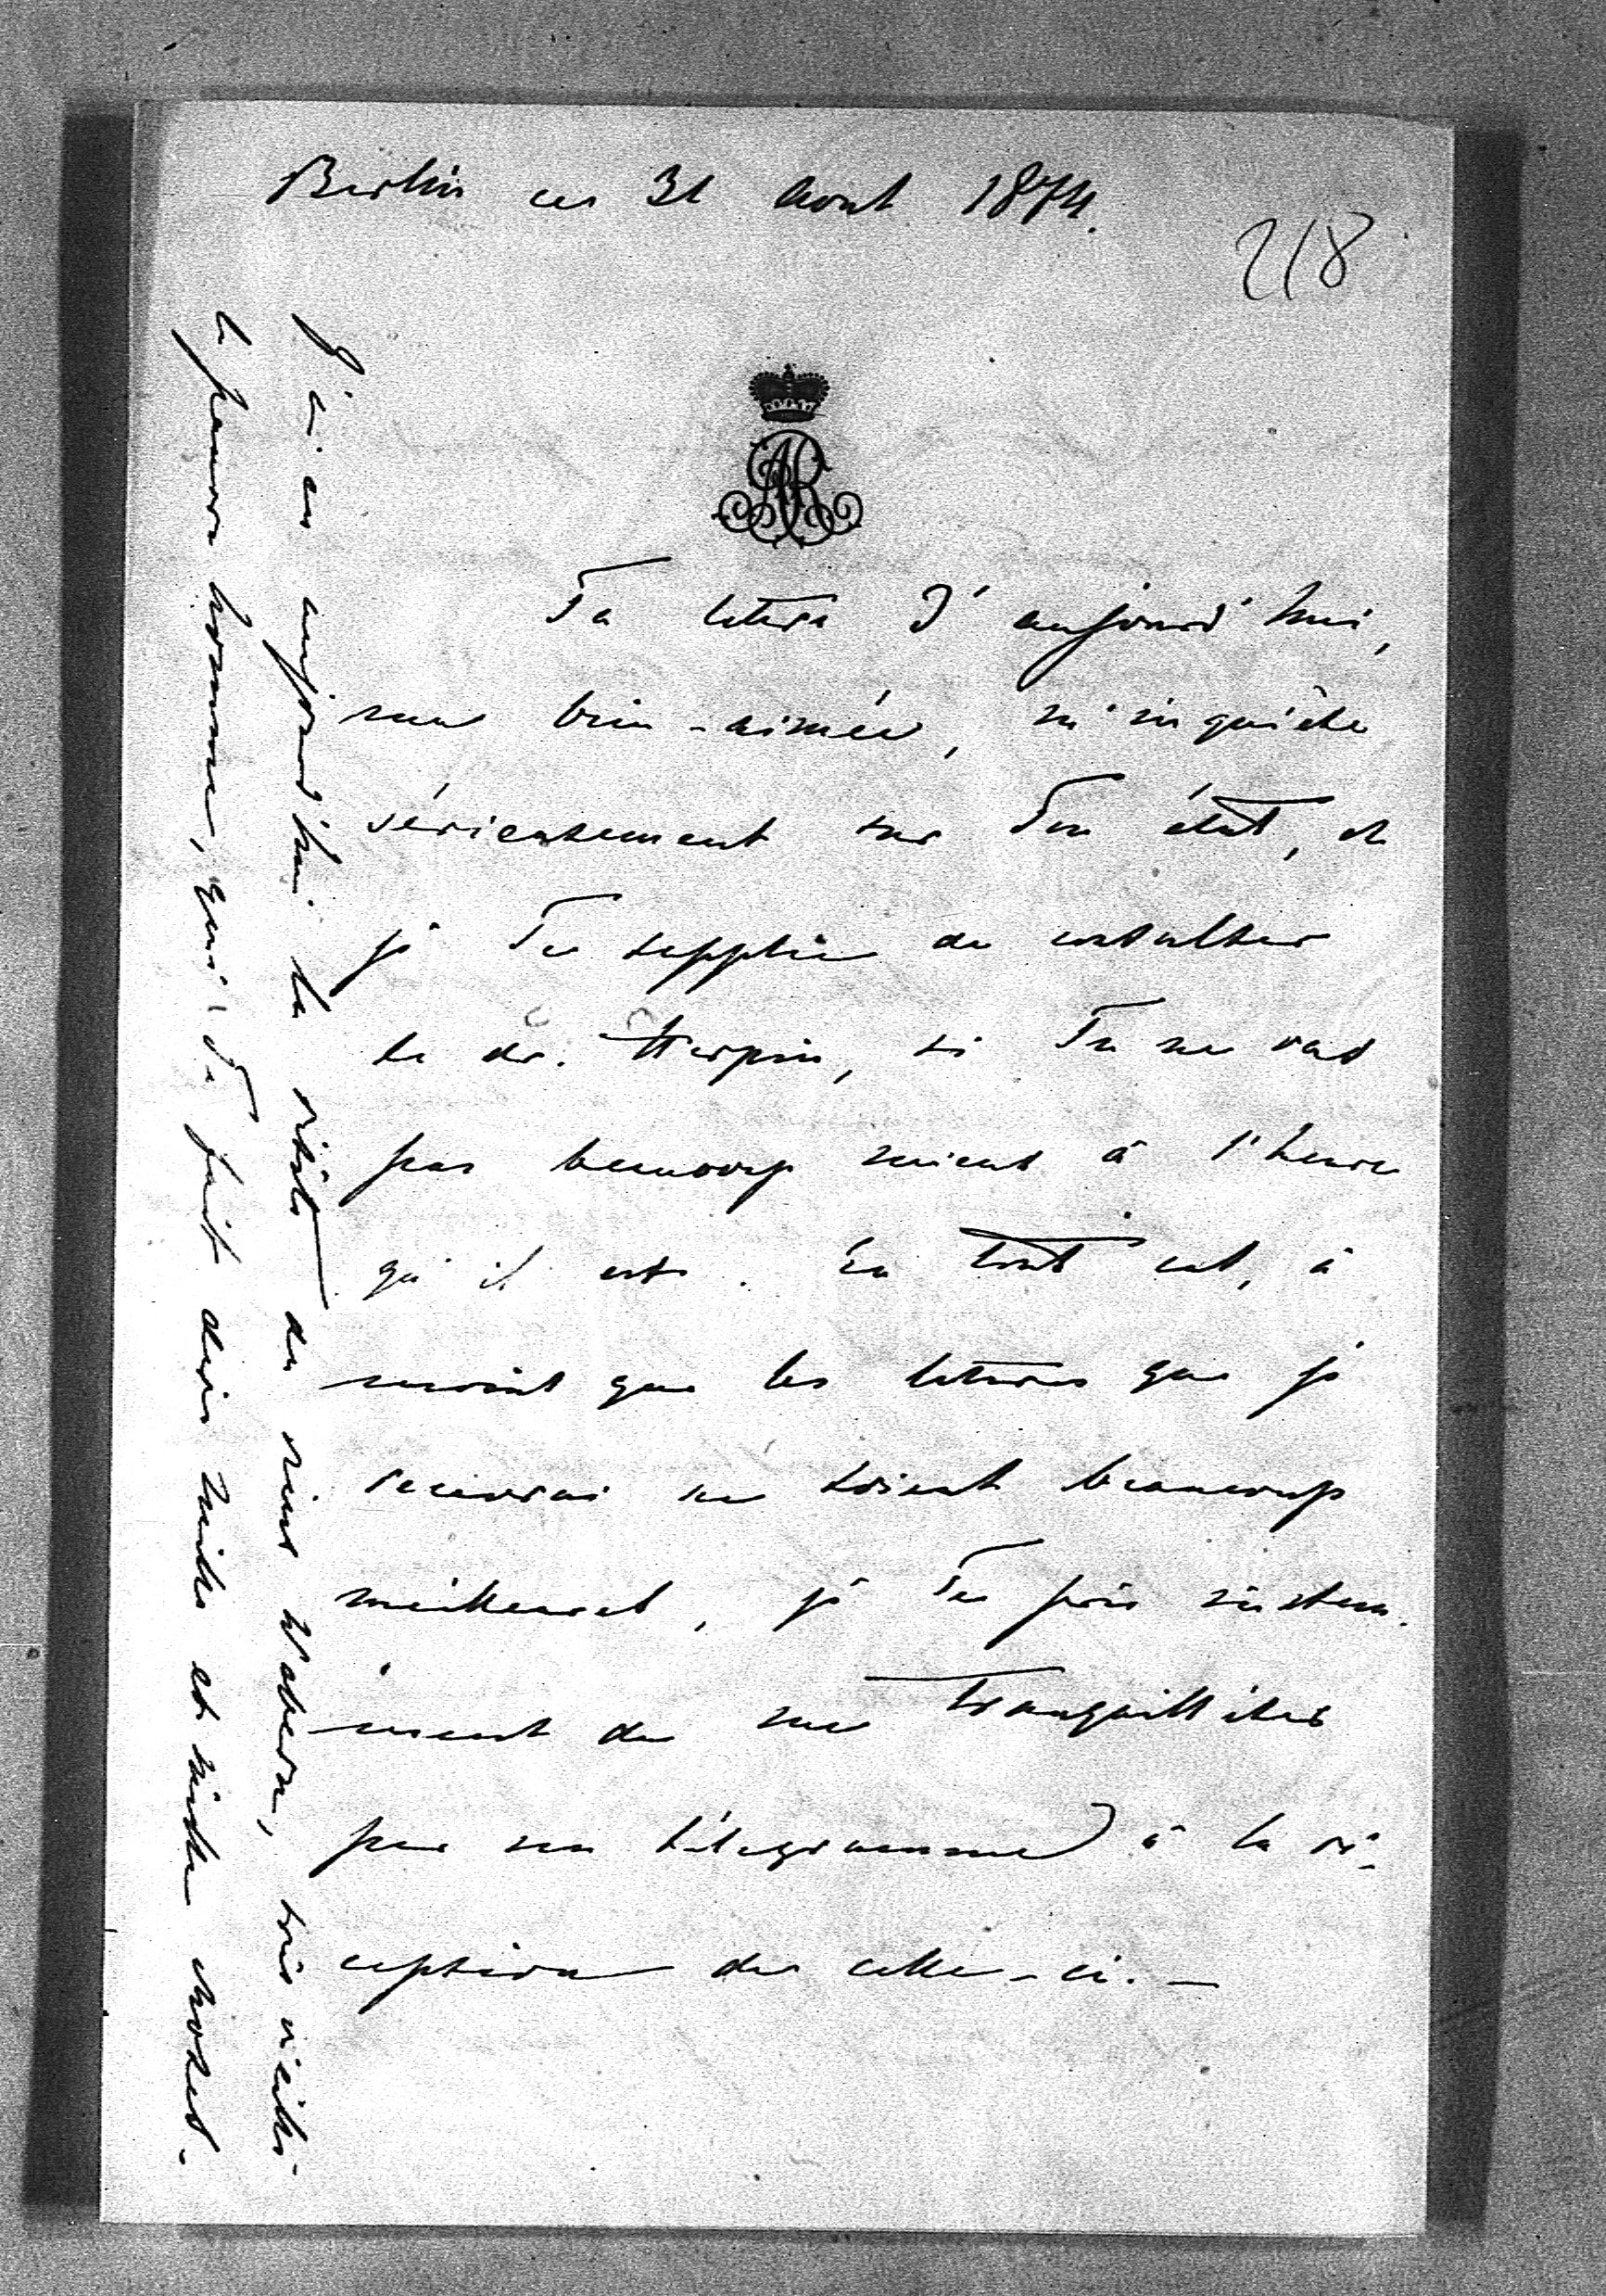 Berlin ce 31 Aout 1874.
218
AR
Ta lettre d'aujourd'hui,
ma bien-aimée, m'inquiète
sérieusement sur Ton état, et
je Te supplie de consulter
le dr. Herpin, si Tu ne vas
pas beaucoup mieux à l'heure
qu'il est. En tout cas, à
moins que les lettres que je
recevrai ne soient beaucoup
meilleures, je Te prie instam-
ment de me tranquilliser
par un télégramme à la ré-
ception de celle-ci. —
J'ai eu aujourd'hui la visite du vieux Wabern, très vieilli
le pauvre homme, qui Te fait dire mille et mille choses.